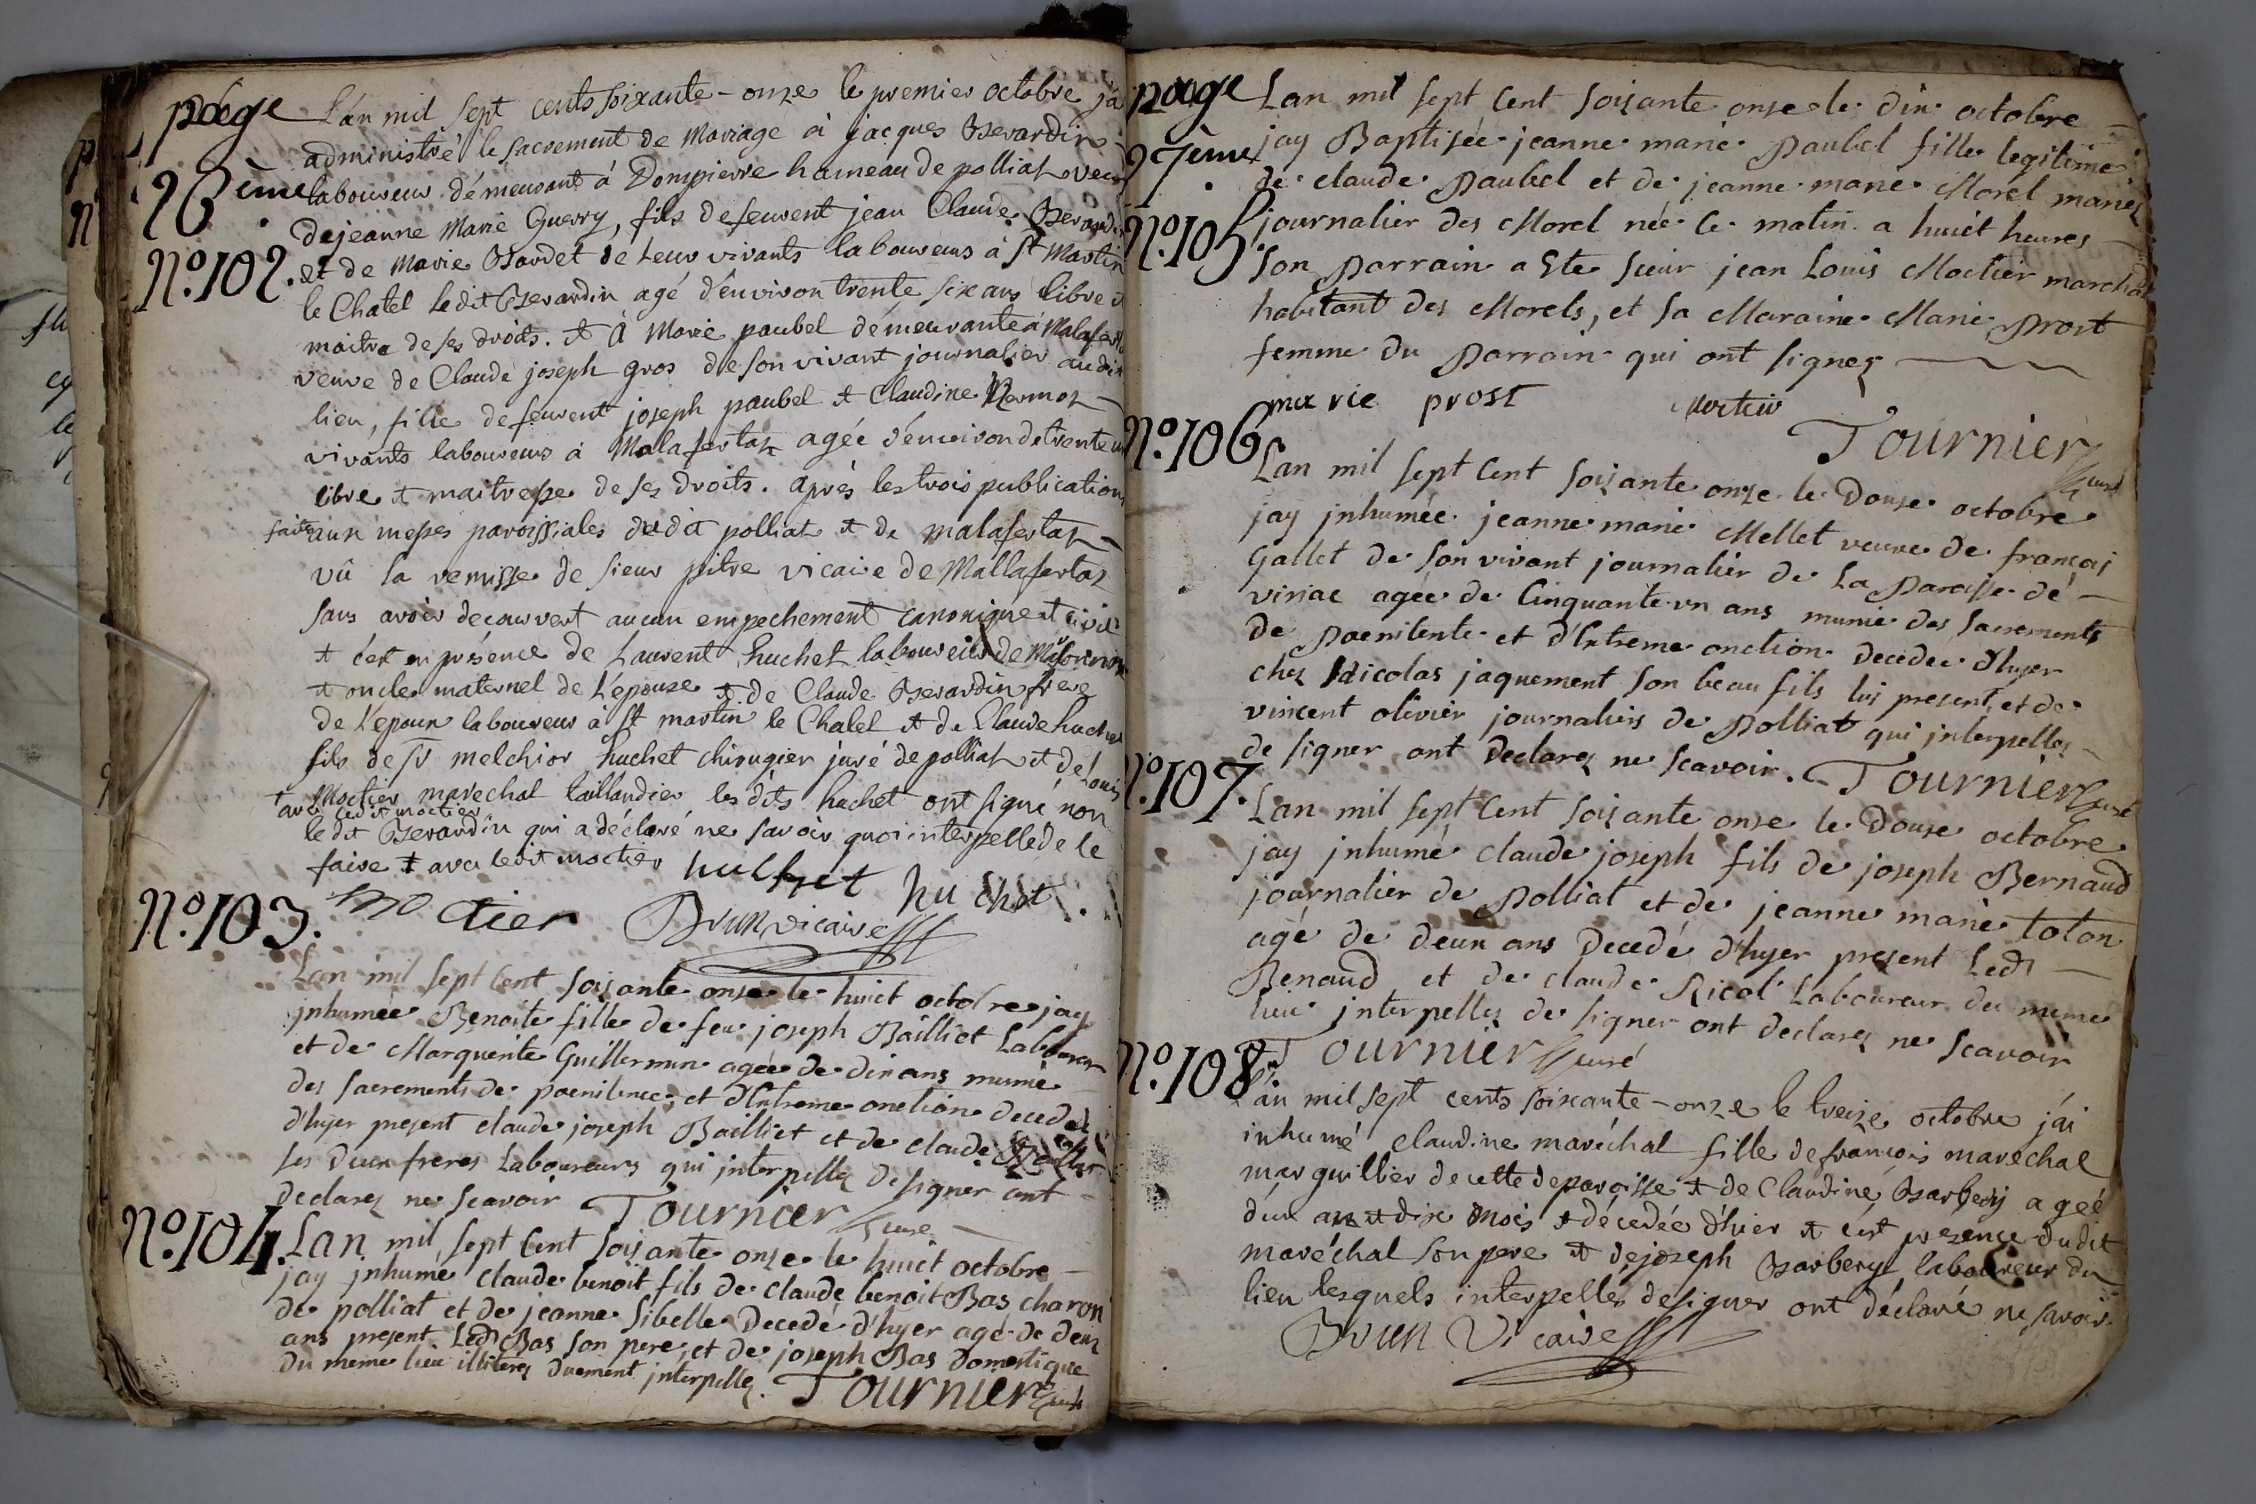 page
26ème
N.º 102.
L'an mil sept cents soixante-onze le premier octobre j'a
administré le sacrement de Mariage à jacques Bevardin
laboureur démeurant à Dompierre hameau de polliat veuf
de jeanne Marie Guerry, fils de feuvent jean Claude Bevard
et de Marie Bardet de leur vivants laboureurs à St Martin
le Chatel ledit Bevardin agé d'énviron trente six ans libre et
maitre de ses droits. et à Marie paubel démeurante à Malafert
veuve de Claude joseph gros de son vivant journalier audit
lieu, fille defeuvent joseph paubel et Claudine
vivants laboureurs à Malafertaz agée d'énviron de trente
libre et maitresse de ses droits. après les trois publications
faites aux messes paroissiales dudit polliat et de malafertaz
vû la remisse de sieur pitre vicaire de Mallafertaz
sans avoir decouvert aucun empechement canonique et civil
et c'est en présence de Laurent huchet laboureur de
et oncle maternel de l'épouze et de Claude Bevardin frere
de l'époux laboureur à St martin le Chatel et de Claude huchet
fils de Sr melchior huchet chirugier juré de polliat et de Louis
Moctier marechal taillandier les dits huchet ont signé non
avec ledit moctier
ledit Bevardin qui a déclaré ne savoir quoi interpellé de le
faire et avec ledit moctier huchet hu chet
mo ctier Brun vicaire
N.º 103.
Lan mil sept Cent soixante onze le huict octobre jay
jnhumée Benoite fille de feu joseph Bailliet Laboureur
et de Marguerite Guillermin agée de dix ans munie
des sacrements de poenitence, et d'Extreme onction decedée
d'hyer present claude joseph Bailliet et de claude Bailliet
ses deux freres Laboureurs qui jnterpellez de signer ont
declarez ne scavoir Tournier curé
N.º 104.
Lan mil sept Cent soixante onze le huict octobre
jay jnhumé claude benoit fils de claude benoit Bas charon
de polliat et de jeanne Sibelle Decedé d'hyer agé de deux
ans present Ledt Bas son pere, et de joseph Bas Domestique
du meme lieu illiterez duement jnterpellez. Tournier curé
page
27ème
N.º 105
Lan mil sept Cent soixante onze le dix octobre
jay Baptisée jeanne marie Paubel fille legitime
de claude Paubel et de jeanne marie Morel mariez
journalier des Morel née ce matin a huict heures
Son Parrain a Ete sieur jean Louis Moctier marchal
habitant des Morels, et sa Maraine Marie Prost
femme du Parrain qui ont signez
marie prost Moctier
Tournier curé
N.º 106
Lan mil sept Cent soixante onze le Douze octobre
jay jnhumée jeanne marie Mellet veuve de françois
Gallet de son vivant journalier de La Paroisse de
viriac agée de Cinquante un ans munie des sacrements
de Poenitente et d'Extreme onction decedée d'hyer
chez Nicolas jaquement son beau fils luy present, et de
vincent olivier journaliers de Polliat qui jnterpellez
de signer ont Declarez ne scavoir. Tournier curé
N.º 107.
Lan mil sept Cent soixante onze le Douze octobre
jay jnhumé claude joseph fils de joseph Bernaud
journalier de Polliat et de jeanne marie tolon
agé de deux ans Decedé d'hyer present Ledt
Renaud et de claude Ricol Laboureur du meme
lieu interpellez de signer ont declarez ne scavoir
Tournier curé
N.º 108.
L'an mil sept cents soixante-onze le treize octobre j'ai
inhumé Claudine maréchal fille de françois maréchal
marguillier de cette deparoisse et de Claudine Barbery ageé
d'un an et dix mois et décedée d'hier et c'est présence dudit
maréchal son pere et de joseph Barbery laboureur du
lieu lesquels interpellés de signer ont déclaré ne savoir.
Brun Vicaire